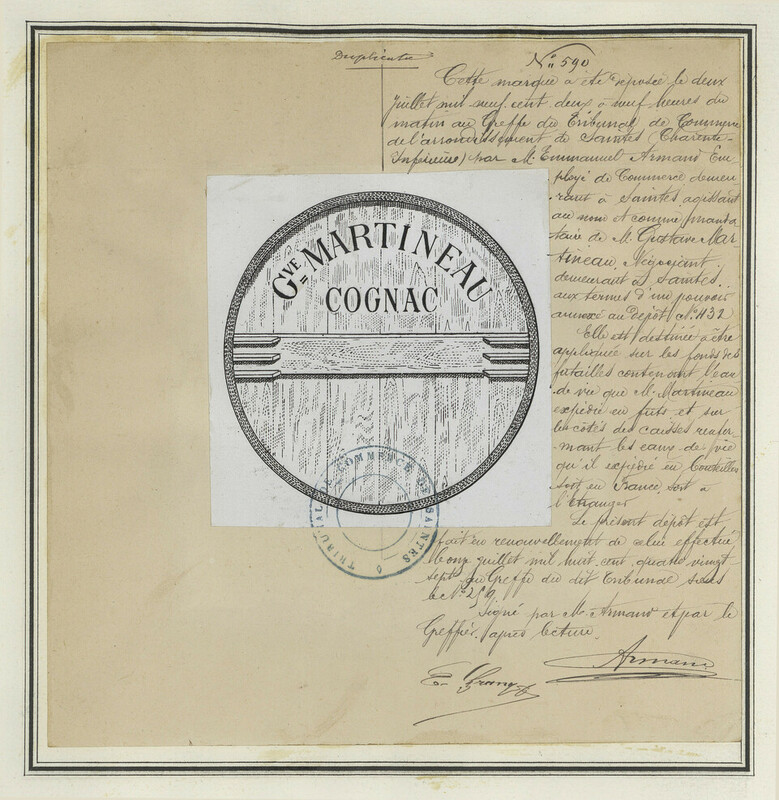 Duplicata
N° 590
Cette marque a été déposée le deux
juillet mil neuf cent deux à neuf heures du
matin au Greffe du Tribunal de Commerce
de l'arrondissement de Saintes (Charente-
Inférieure) par M. Emmanuel Armand Em
ployé de Commerce demeu
rant à Saintes, agissant
au nom et comme manda
taire de M. Gustave Mar-
tineau, Négociant
demeurant à Saintes
aux termes d'un pouvoir
annexé au dépôt N° 432
Elle est destinée à être
appliquée sur les fonds des
futailles contenant l'eau
de vie que M. Martineau
expédie en futs et sur
les côtés des caisses renfer-
mant les eaux-de-vie
qu'il expédie en bouteilles
soit en France, soit à
l'étranger.
Le présent dépôt est
fait en renouvellement de celui effectué
le onze juillet mil huit cent quatre vingt
sept au Greffe du dit Tribunal sous
le N° 259
Signé par M. Armand et par le
Greffier, après lecture.
Armand
GVE MARTINEAU
COGNAC
TRIBUNAL DE COMMERCE DE SAINTES